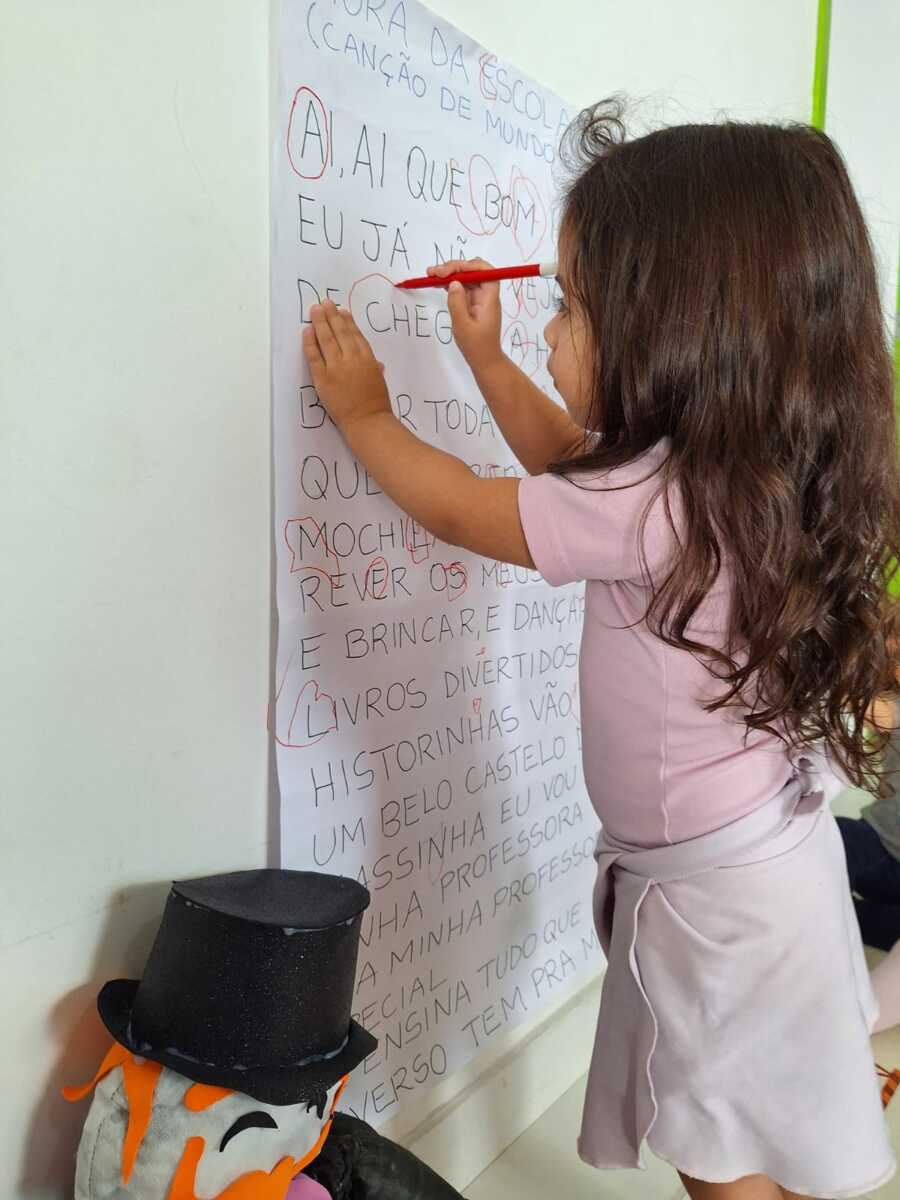 HORA DA ESCOLA
(CANÇÃO DE MUNDO
AI, AI QUE BOM
EU JÁ
DE
TODA
QUE
MOCHILA
REVER OS MEUS
E BRINCAR, E DANÇAR
LIVROS DIVERTIDOS
HISTORINHAS VÃO
UM BELO CASTELO
ASSINHA EU VOU
NHA PROFESSORA
A MINHA PROFESSO
PECIAL
ENSINA TUDO QUE
VERSO TEM PRA M